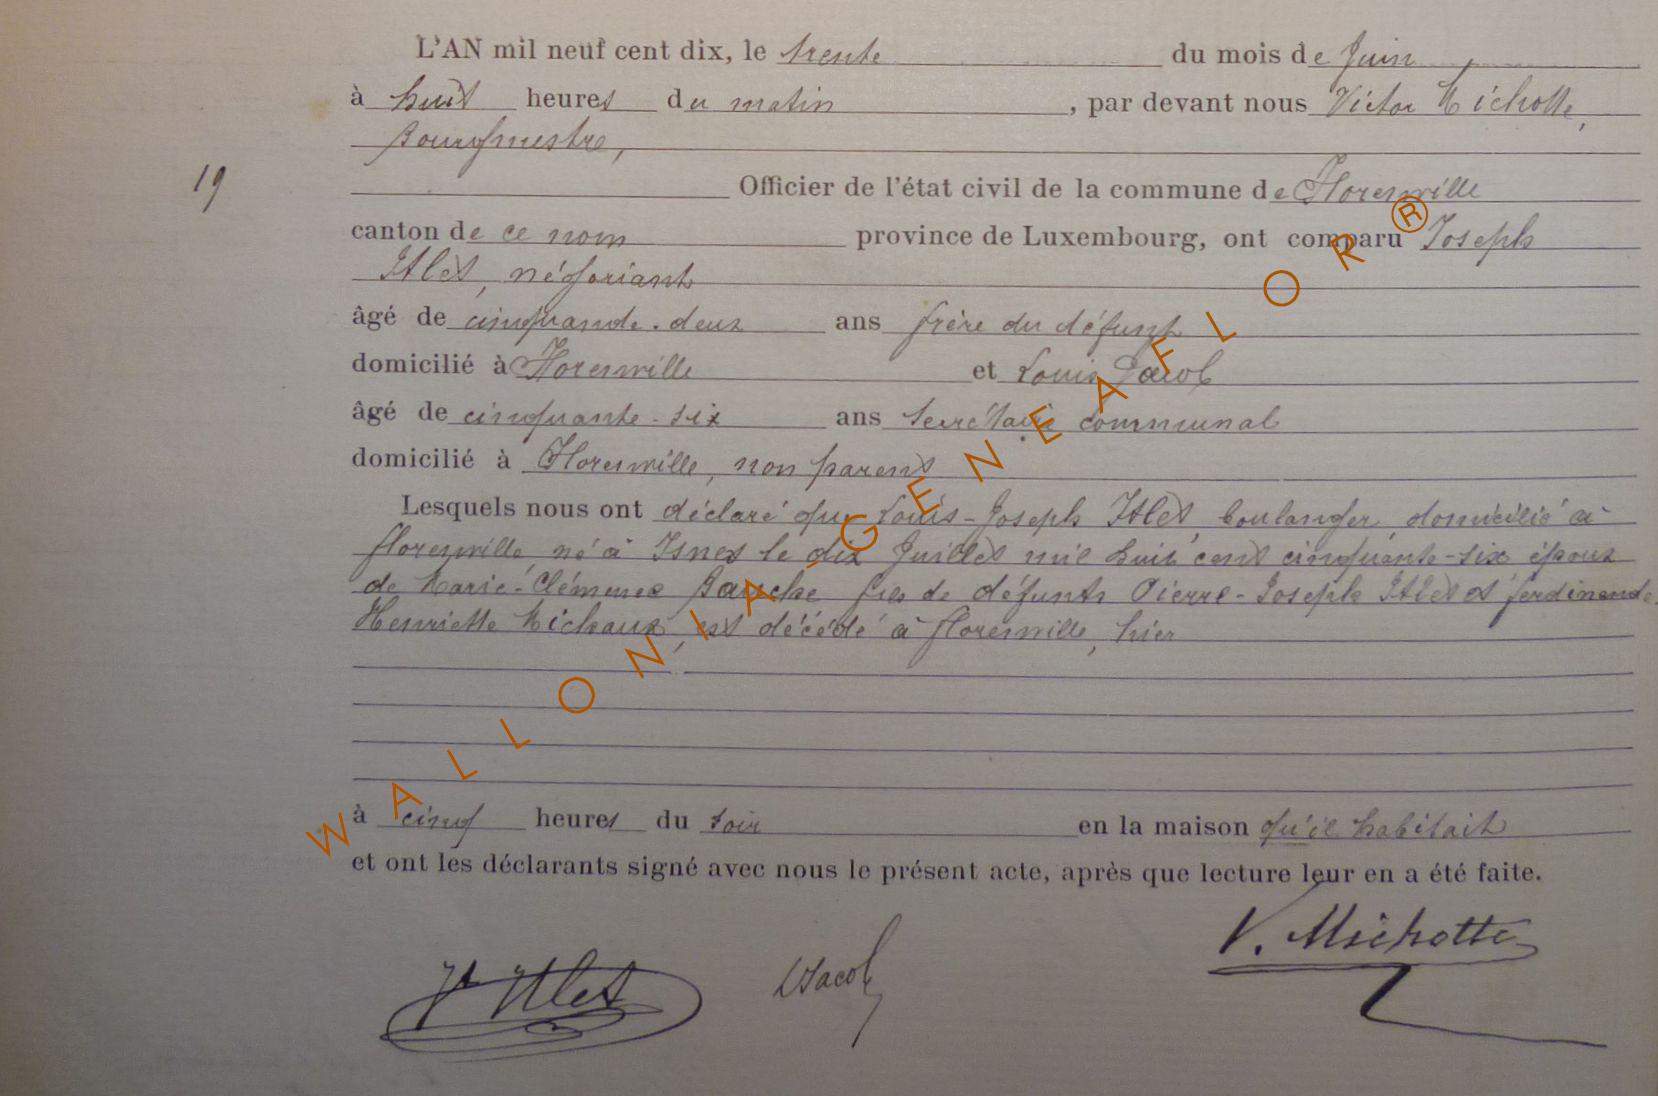 L'AN mil neuf cent dix, le trente du mois de Juin
à huit heures du matin, par devant nous Victor Michotte,
Bourgmestre,
19
Officier de l'état civil de la commune de Florenville
canton de ce nom province de Luxembourg, ont comparu Joseph
négociant
âgé de cinquante-deux ans frère du défunt
domicilié à Florenville et Louis Jacob
âgé de cinquante-six ans secrétaire communal
domicilié à Florenville, non parent
Lesquels nous ont déclaré que Louis-Joseph boulanger, domicilié à
florenville, né à Isnes le dix Juillet mil huit cent cinquante-six époux
de Marie-Clémence fils de défunts Pierre-Joseph et ferdinande
Henriette Michaux, est décédé à florenville, hier
à cinq heures du soir en la maison qu'il habitait
et ont les déclarants signé avec nous le présent acte, après que lecture leur en a été faite.
V. Michotte
LJacob
WALLONIA-GENEAFLOR®